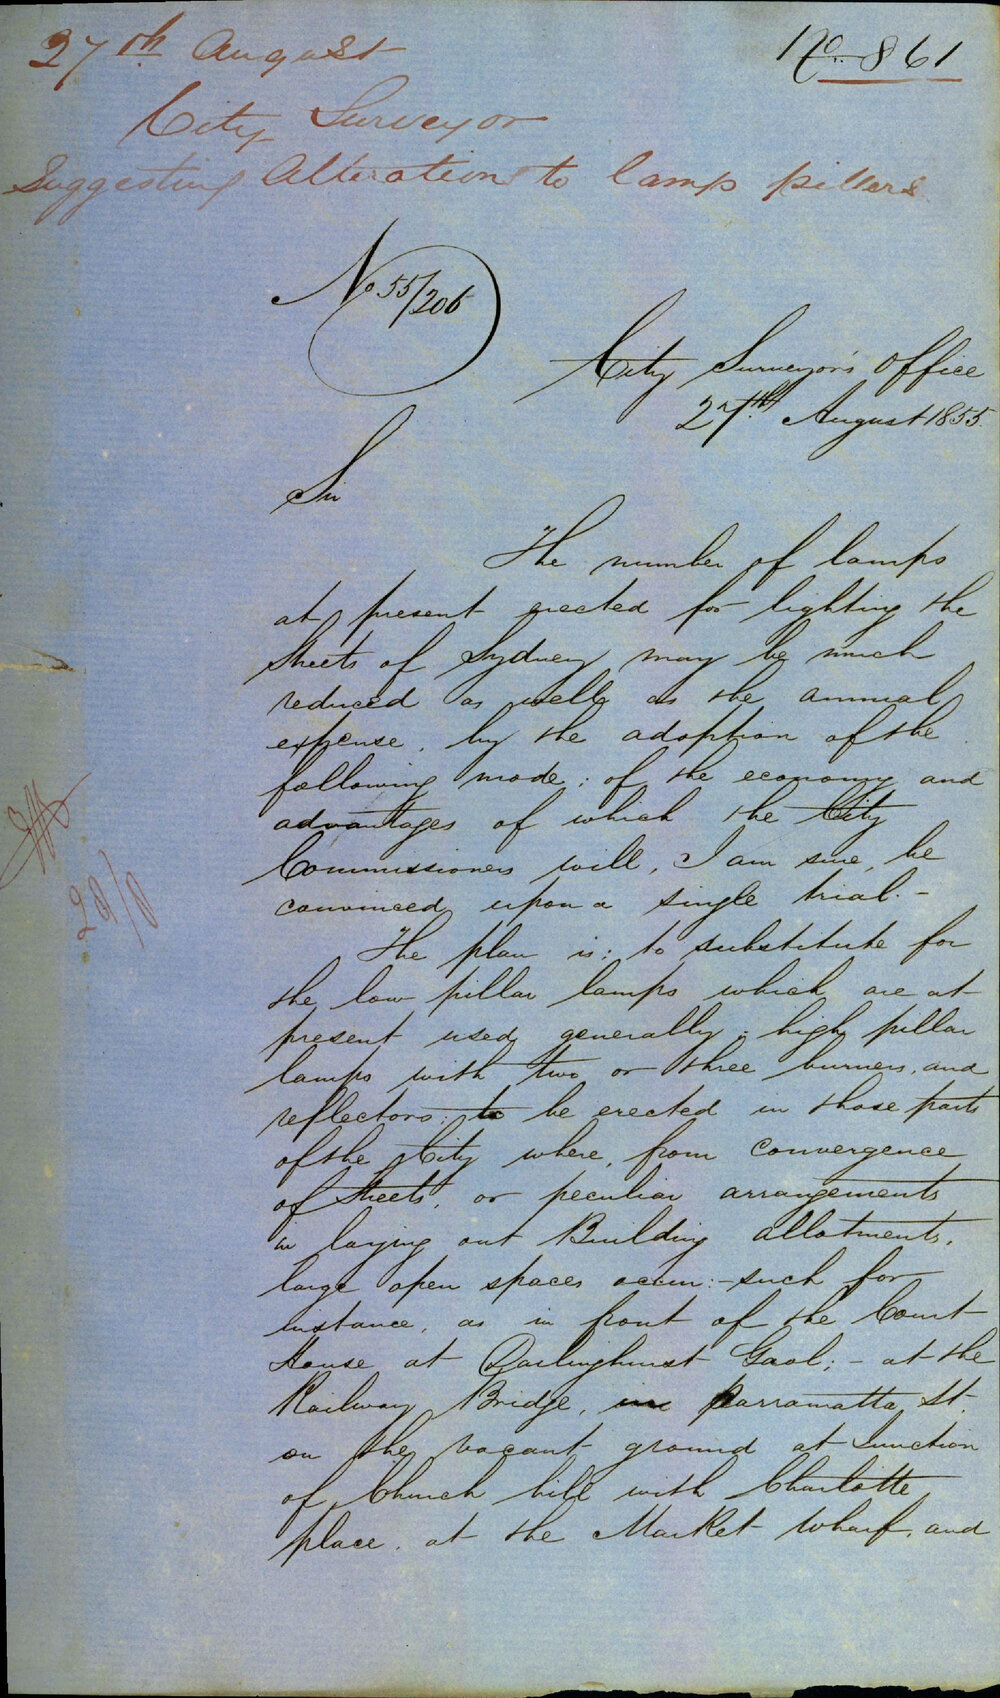 27th August
No. 861
City Surveyor
Suggesting Alterations to lamp pillars
No 55/206
City Surveyor's Office
27th August 1855.
Sir
The number of lamps
at present erected for lighting the
Streets of Sydney may be much
reduced as well as the annual
expense, by the adoption of the
following mode; of the economy and
advantages of which the City
Commissioners will, I am sure, be
convinced upon a single trial.-
The plan is; to substitute for
the low pillar lamps which are at
present used generally; high pillar
lamps with two or three burners, and
reflectors; to be erected in those parts
of the City where, from convergence
of Streets, or peculiar arrangements
in laying out Building allotments,
large open spaces occur:- such for
instance, as in front of the Court
House at Darlinghurst Gaol;- at the
Railway Bridge, in Parramatta St.
on the vacant ground at Junction
of Church hill with Charlotte
place, at the Market Wharf, and